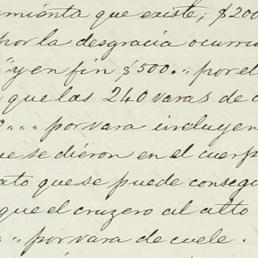 miónta que existe; $200
por la desgracia ocurri
"y en fin $500.„ por el
que las 240 varas de c
„ „ por vara incluyen
se diéron en el cuerp
ato que se puede consegu
que el cruzero al alto
„ por vara de cuele.